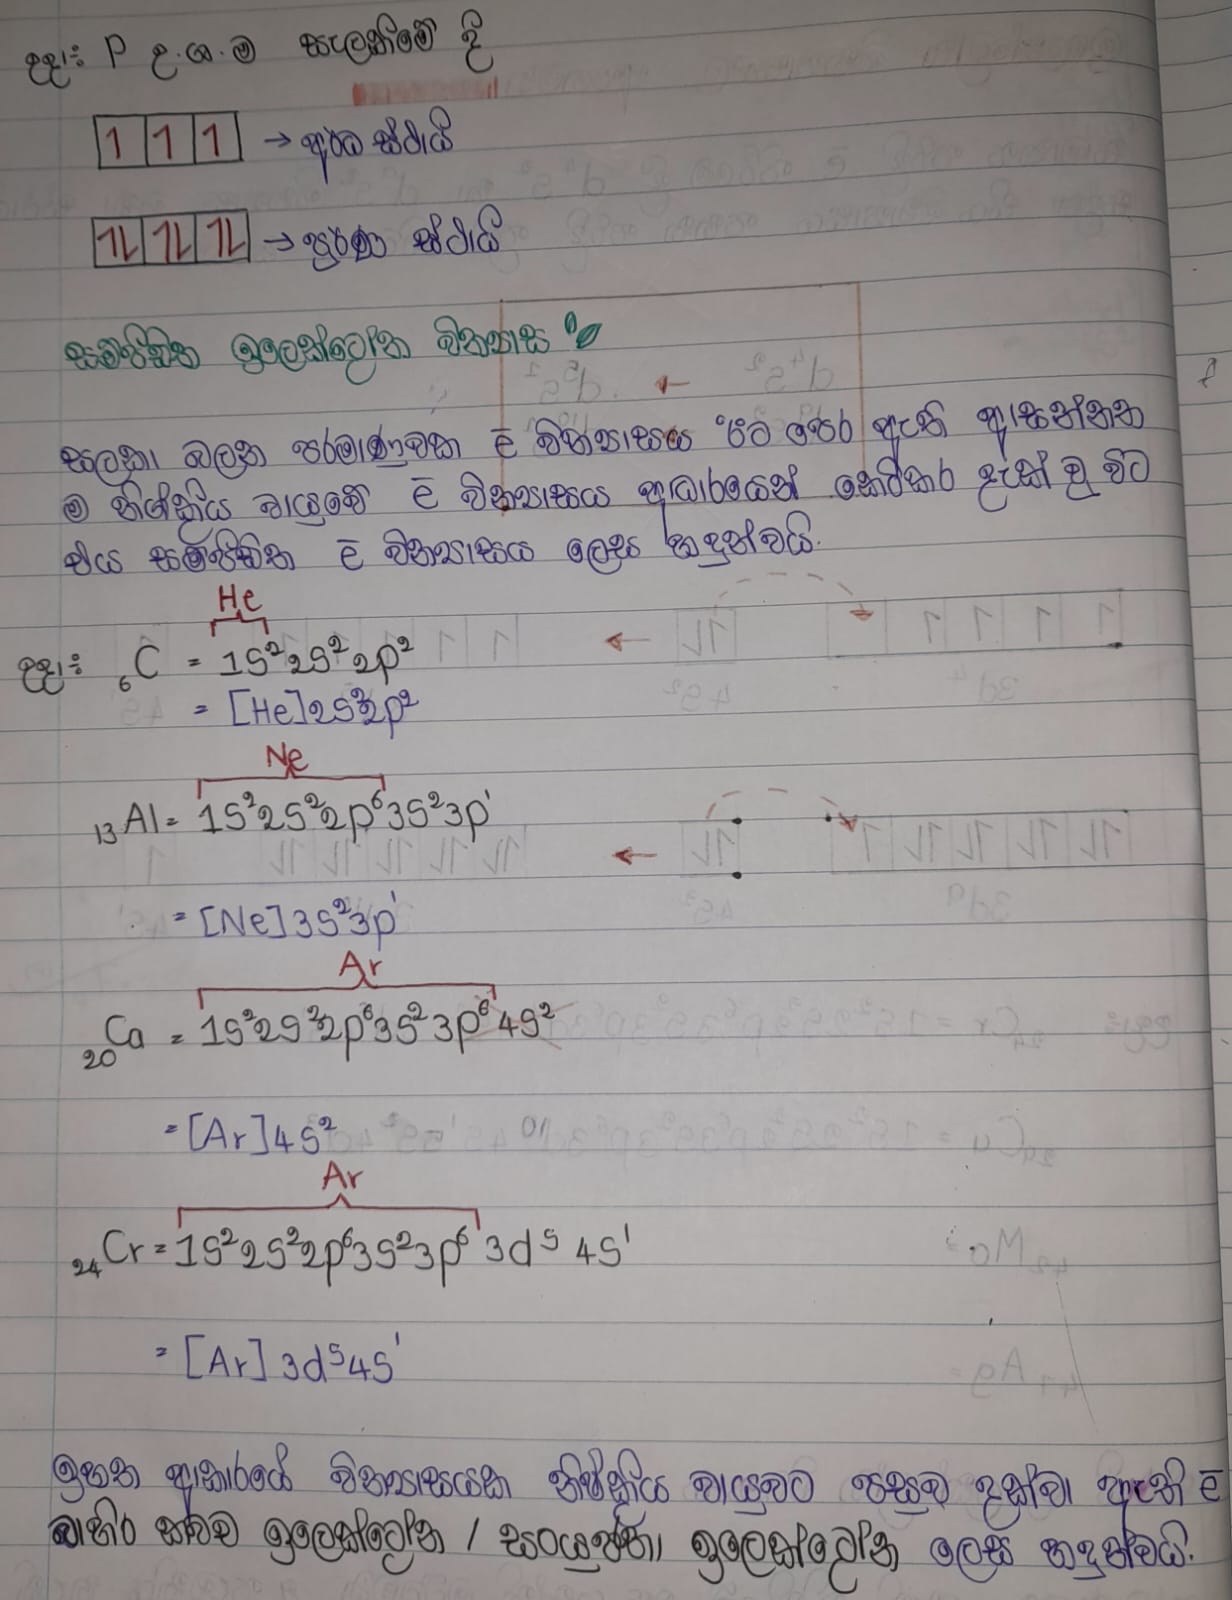 උදා: P උ.ශ.ම සැලකීමේ දී
1 1 1 → අර්ධ ස්ථායී
1L 1L 1L → පූර්ණ ස්ථායී
සම්පීඩිත ඉලෙක්ට්‍රෝන වින්‍යාස
සලකා බලන පරමාණුවක ē වින්‍යාසය ඊට පෙර ඇති ආසන්නත
ම නිෂ්ක්‍රිය වායුවේ ē වින්‍යාසය ආධාරයෙන් කෙටිකර දැක් වූ විට
එය සම්පීඩිත ē වින්‍යාසය ලෙස හඳුන්වයි.
He
උදා: ₆C = 1S² 2S² 2p²
= [He] 2S² 2p²
Ne
₁₃Al = 1S² 2S² 2p⁶ 3S² 3p¹
= [Ne] 3S² 3p¹
Ar
₂₀Ca = 1S² 2S² 2p⁶ 3S² 3p⁶ 4S²
= [Ar] 4S²
Ar
₂₄Cr = 1S² 2S² 2p⁶ 3S² 3p⁶ 3d⁵ 4S¹
= [Ar] 3d⁵ 4S¹
ඉහත ආකාරයේ වින්‍යාසයක නිෂ්ක්‍රිය වායුවට පසුව දක්වා ඇති ē
බාහිර කවච ඉලෙක්ට්‍රෝන / සංයුජතා ඉලෙක්ට්‍රෝන ලෙස හඳුන්වයි.